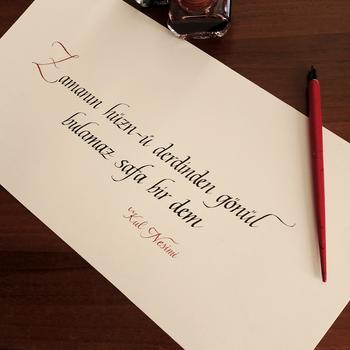 Zamanın hüzn-ü derdinden gönül
bulamaz safa bir dem
Kul Nesimi